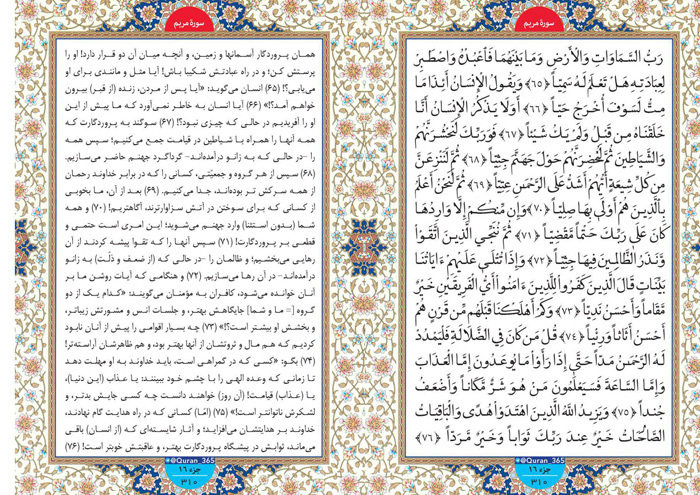 سورهٔ مریم
رَبُّ السَّمَاوَاتِ وَالْأَرْضِ وَمَا بَيْنَهُمَا فَاعْبُدْهُ وَاصْطَبِرْ
لِعِبَادَتِهِ هَلْ تَعْلَمُ لَهُ سَمِيّاً ﴿۶۵﴾ وَيَقُولُ الْإِنسَانُ أَئِذَا مَا
مِتُّ لَسَوْفَ أُخْرَجُ حَيّاً ﴿۶۶﴾ أَوَلَا يَذْكُرُ الْإِنسَانُ أَنَّا
خَلَقْنَاهُ مِن قَبْلُ وَلَمْ يَكُ شَيْئاً ﴿۶۷﴾ فَوَرَبِّكَ لَنَحْشُرَنَّهُمْ
وَالشَّيَاطِينَ ثُمَّ لَنُحْضِرَنَّهُمْ حَوْلَ جَهَنَّمَ جِثِيّاً ﴿۶۸﴾ ثُمَّ لَنَنزِعَنَّ
مِن كُلِّ شِيعَةٍ أَيُّهُمْ أَشَدُّ عَلَى الرَّحْمَنِ عِتِيّاً ﴿۶۹﴾ ثُمَّ لَنَحْنُ أَعْلَمُ
بِالَّذِينَ هُمْ أَوْلَى بِهَا صِلِيّاً ﴿۷۰﴾ وَإِن مِنكُمْ إِلَّا وَارِدُهَا
كَانَ عَلَى رَبِّكَ حَتْماً مَقْضِيّاً ﴿۷۱﴾ ثُمَّ نُنَجِّي الَّذِينَ اتَّقَوْا
وَنَذَرُ الظَّالِمِينَ فِيهَا جِثِيّاً ﴿۷۲﴾ وَإِذَا تُتْلَى عَلَيْهِمْ ءَايَاتُنَا
بَيِّنَاتٍ قَالَ الَّذِينَ كَفَرُوا لِلَّذِينَ ءَامَنُوا أَيُّ الْفَرِيقَيْنِ خَيْرٌ
مَقَاماً وَأَحْسَنُ نَدِيّاً ﴿۷۳﴾ وَكَمْ أَهْلَكْنَا قَبْلَهُم مِن قَرْنٍ هُمْ
أَحْسَنُ أَثَاثاً وَرِئْياً ﴿۷۴﴾ قُلْ مَن كَانَ فِي الضَّلَالَةِ فَلْيَمْدُدْ
لَهُ الرَّحْمَنُ مَدّاً حَتَّى إِذَا رَأَوْا مَا يُوعَدُونَ إِمَّا الْعَذَابَ
وَإِمَّا السَّاعَةَ فَسَيَعْلَمُونَ مَنْ هُوَ شَرٌّ مَكَاناً وَأَضْعَفُ
جُنداً ﴿۷۵﴾ وَيَزِيدُ اللَّهُ الَّذِينَ اهْتَدَوْا هُدًى وَالْبَاقِيَاتُ
الصَّالِحَاتُ خَيْرٌ عِندَ رَبِّكَ ثَوَاباً وَخَيْرٌ مَرَدّاً ﴿۷۶﴾
@Quran_365
جزء ۱۶
۳۱۰
سورهٔ مریم
همان پروردگار آسمانها و زمین، و آنچه میان آن دو قرار دارد! او را
پرستش کن؛ و در راه عبادتش شکیبا باش! آیا مثل و مانندی برای او
می‌یابی؟! (۶۵) انسان می‌گوید: «آیا پس از مردن، زنده (از قبر) بیرون
خواهم آمد؟!» (۶۶) آیا انسان به خاطر نمی‌آورد که ما پیش از این
او را آفریدیم در حالی که چیزی نبود؟! (۶۷) سوگند به پروردگارت که
همه آنها را همراه با شیاطین در قیامت جمع می‌کنیم؛ سپس همه
را -در حالی که به زانو درآمده‌اند- گرداگرد جهنم حاضر می‌سازیم.
(۶۸) سپس از هر گروه و جمعیّتی، کسانی را که در برابر خداوند رحمان
از همه سرکش تر بوده‌اند، جدا می‌کنیم. (۶۹) بعد از آن، ما بخوبی
از کسانی که برای سوختن در آتش سزاوارترند، آگاهتریم! (۷۰) و همه
شما (بدون استثنا) وارد جهنم می‌شوید؛ این امری است حتمی و
قطعی بر پروردگارت! (۷۱) سپس آنها را که تقوا پیشه کردند از آن
رهایی می‌بخشیم؛ و ظالمان را -در حالی که (از ضعف و ذلّت) به زانو
درآمده‌اند- در آن رها می‌سازیم. (۷۲) و هنگامی که آیات روشن ما بر
آنان خوانده می‌شود، کافران به مؤمنان می‌گویند: «کدام یک از دو
گروه [= ما و شما] جایگاهش بهتر، و جلسات انس و مشورتش زیباتر،
و بخشش او بیشتر است؟!» (۷۳) چه بسیار اقوامی را پیش از آنان نابود
کردیم که هم مال و ثروتشان از آنها بهتر بود، و هم ظاهرشان آراسته‌تر!
(۷۴) بگو: «کسی که در گمراهی است، باید خداوند به او مهلت دهد
تا زمانی که وعده الهی را با چشم خود ببینند: یا عذاب (این دنیا)،
یا (عذاب) قیامت! (آن روز) خواهند دانست چه کسی جایش بدتر، و
لشکرش ناتوانتر است!» (۷۵) (امّا) کسانی که در راه هدایت گام نهادند،
خداوند بر هدایتشان می‌افزاید؛ و آثار شایسته‌ای که (از انسان) باقی
می‌ماند، ثوابش در پیشگاه پروردگارت بهتر، و عاقبتش خوبتر است! (۷۶)
@Quran_365
جزء ۱۶
۳۱۰